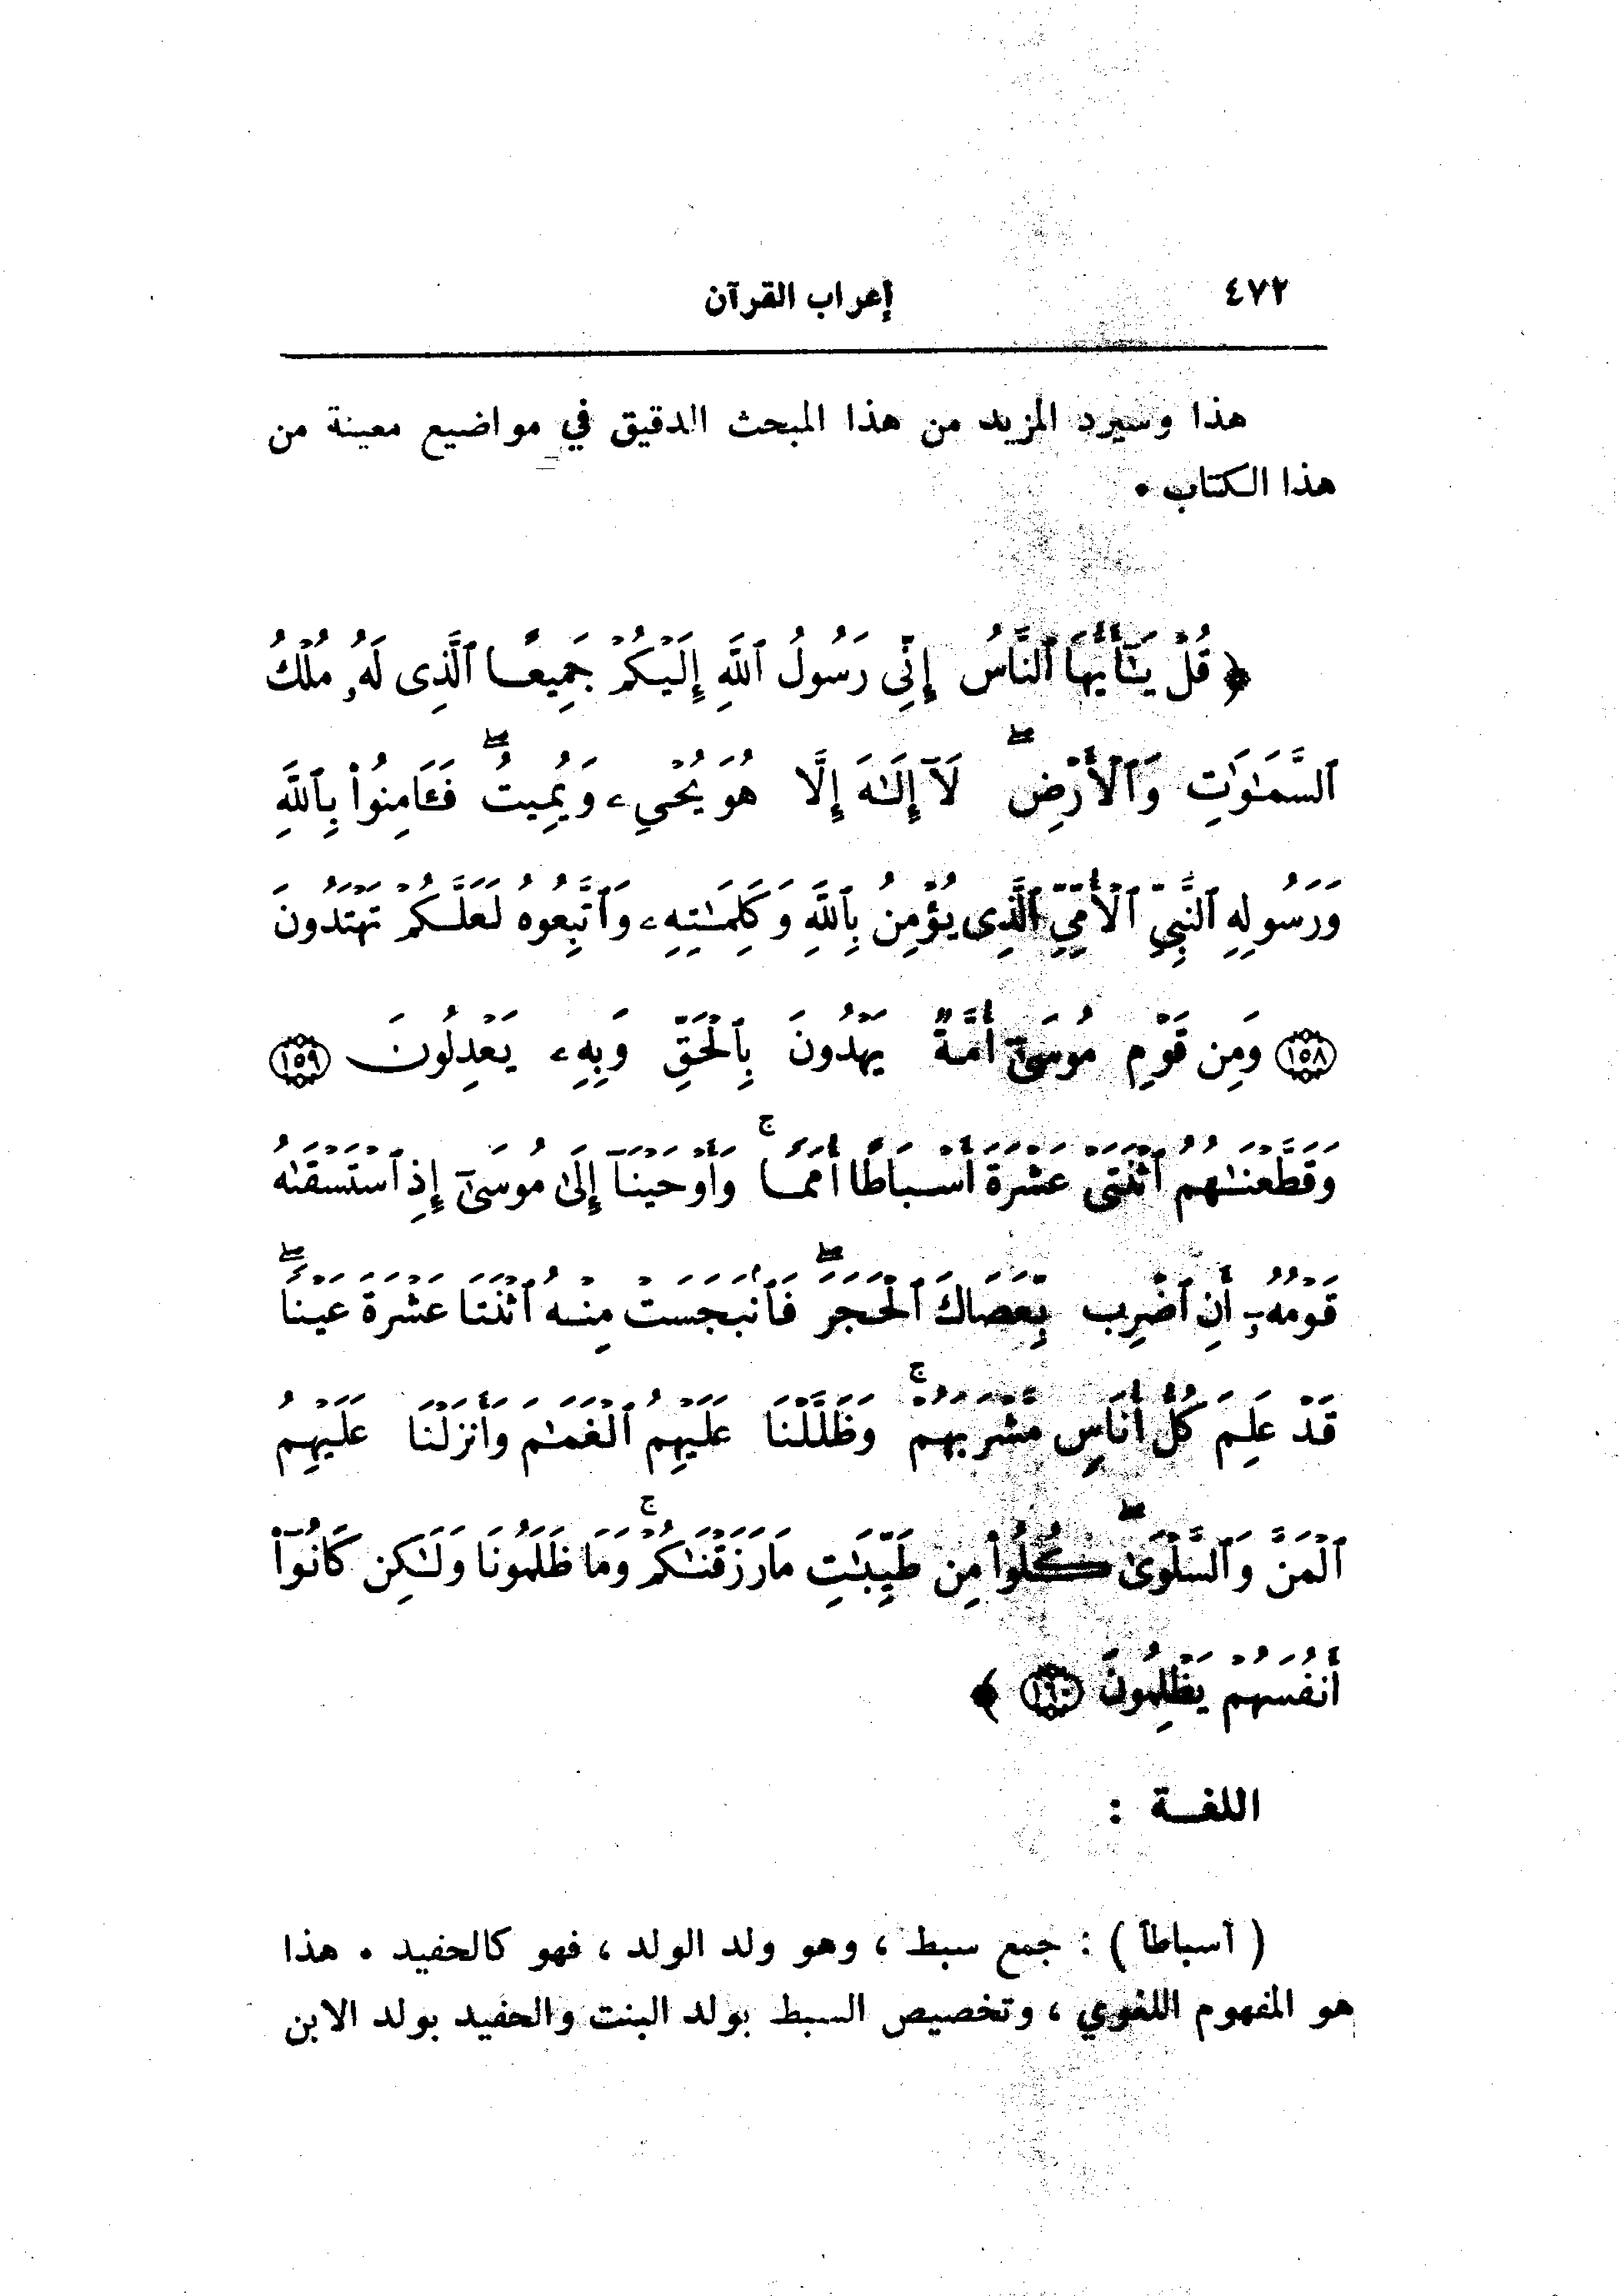 ٤٧٢
إعراب القرآن
هذا وسيرد المزيد من هذا المبحث الدقيق في مواضيع معينة من
هذا الكتاب ٠
﴿ قُلْ يَـٰٓأَيُّهَا ٱلنَّاسُ إِنِّى رَسُولُ ٱللَّهِ إِلَيْكُمْ جَمِيعًا ٱلَّذِى لَهُۥ مُلْكُ
ٱلسَّمَـٰوَٰتِ وَٱلْأَرْضِ ۖ لَآ إِلَـٰهَ إِلَّا هُوَ يُحْىِۦ وَيُمِيتُ ۖ فَـَٔامِنُوا۟ بِٱللَّهِ
وَرَسُولِهِ ٱلنَّبِىِّ ٱلْأُمِّىِّ ٱلَّذِى يُؤْمِنُ بِٱللَّهِ وَكَلِمَـٰتِهِۦ وَٱتَّبِعُوهُ لَعَلَّكُمْ تَهْتَدُونَ
١٥٨ وَمِن قَوْمِ مُوسَىٰٓ أُمَّةٌ يَهْدُونَ بِٱلْحَقِّ وَبِهِۦ يَعْدِلُونَ ١٥٩
وَقَطَّعْنَـٰهُمُ ٱثْنَتَىْ عَشْرَةَ أَسْبَاطًا أُمَمًا ۚ وَأَوْحَيْنَآ إِلَىٰ مُوسَىٰٓ إِذِ ٱسْتَسْقَىٰهُ
قَوْمُهُۥٓ أَنِ ٱضْرِب بِّعَصَاكَ ٱلْحَجَرَ ۖ فَٱنۢبَجَسَتْ مِنْهُ ٱثْنَتَا عَشْرَةَ عَيْنًا ۖ
قَدْ عَلِمَ كُلُّ أُنَاسٍ مَّشْرَبَهُمْ ۚ وَظَلَّلْنَا عَلَيْهِمُ ٱلْغَمَـٰمَ وَأَنزَلْنَا عَلَيْهِمُ
ٱلْمَنَّ وَٱلسَّلْوَىٰ ۖ كُلُوا۟ مِن طَيِّبَـٰتِ مَا رَزَقْنَـٰكُمْ ۚ وَمَا ظَلَمُونَا وَلَـٰكِن كَانُوٓا۟
أَنفُسَهُمْ يَظْلِمُونَ ١٦٠ ﴾
اللغـــة :
( أسباطاً ) : جمع سبط ، وهو ولد الولد ، فهو كالحفيد ٠ هذا
هو المفهوم اللغوي ، وتخصيص السبط بولد البنت والحفيد بولد الابن